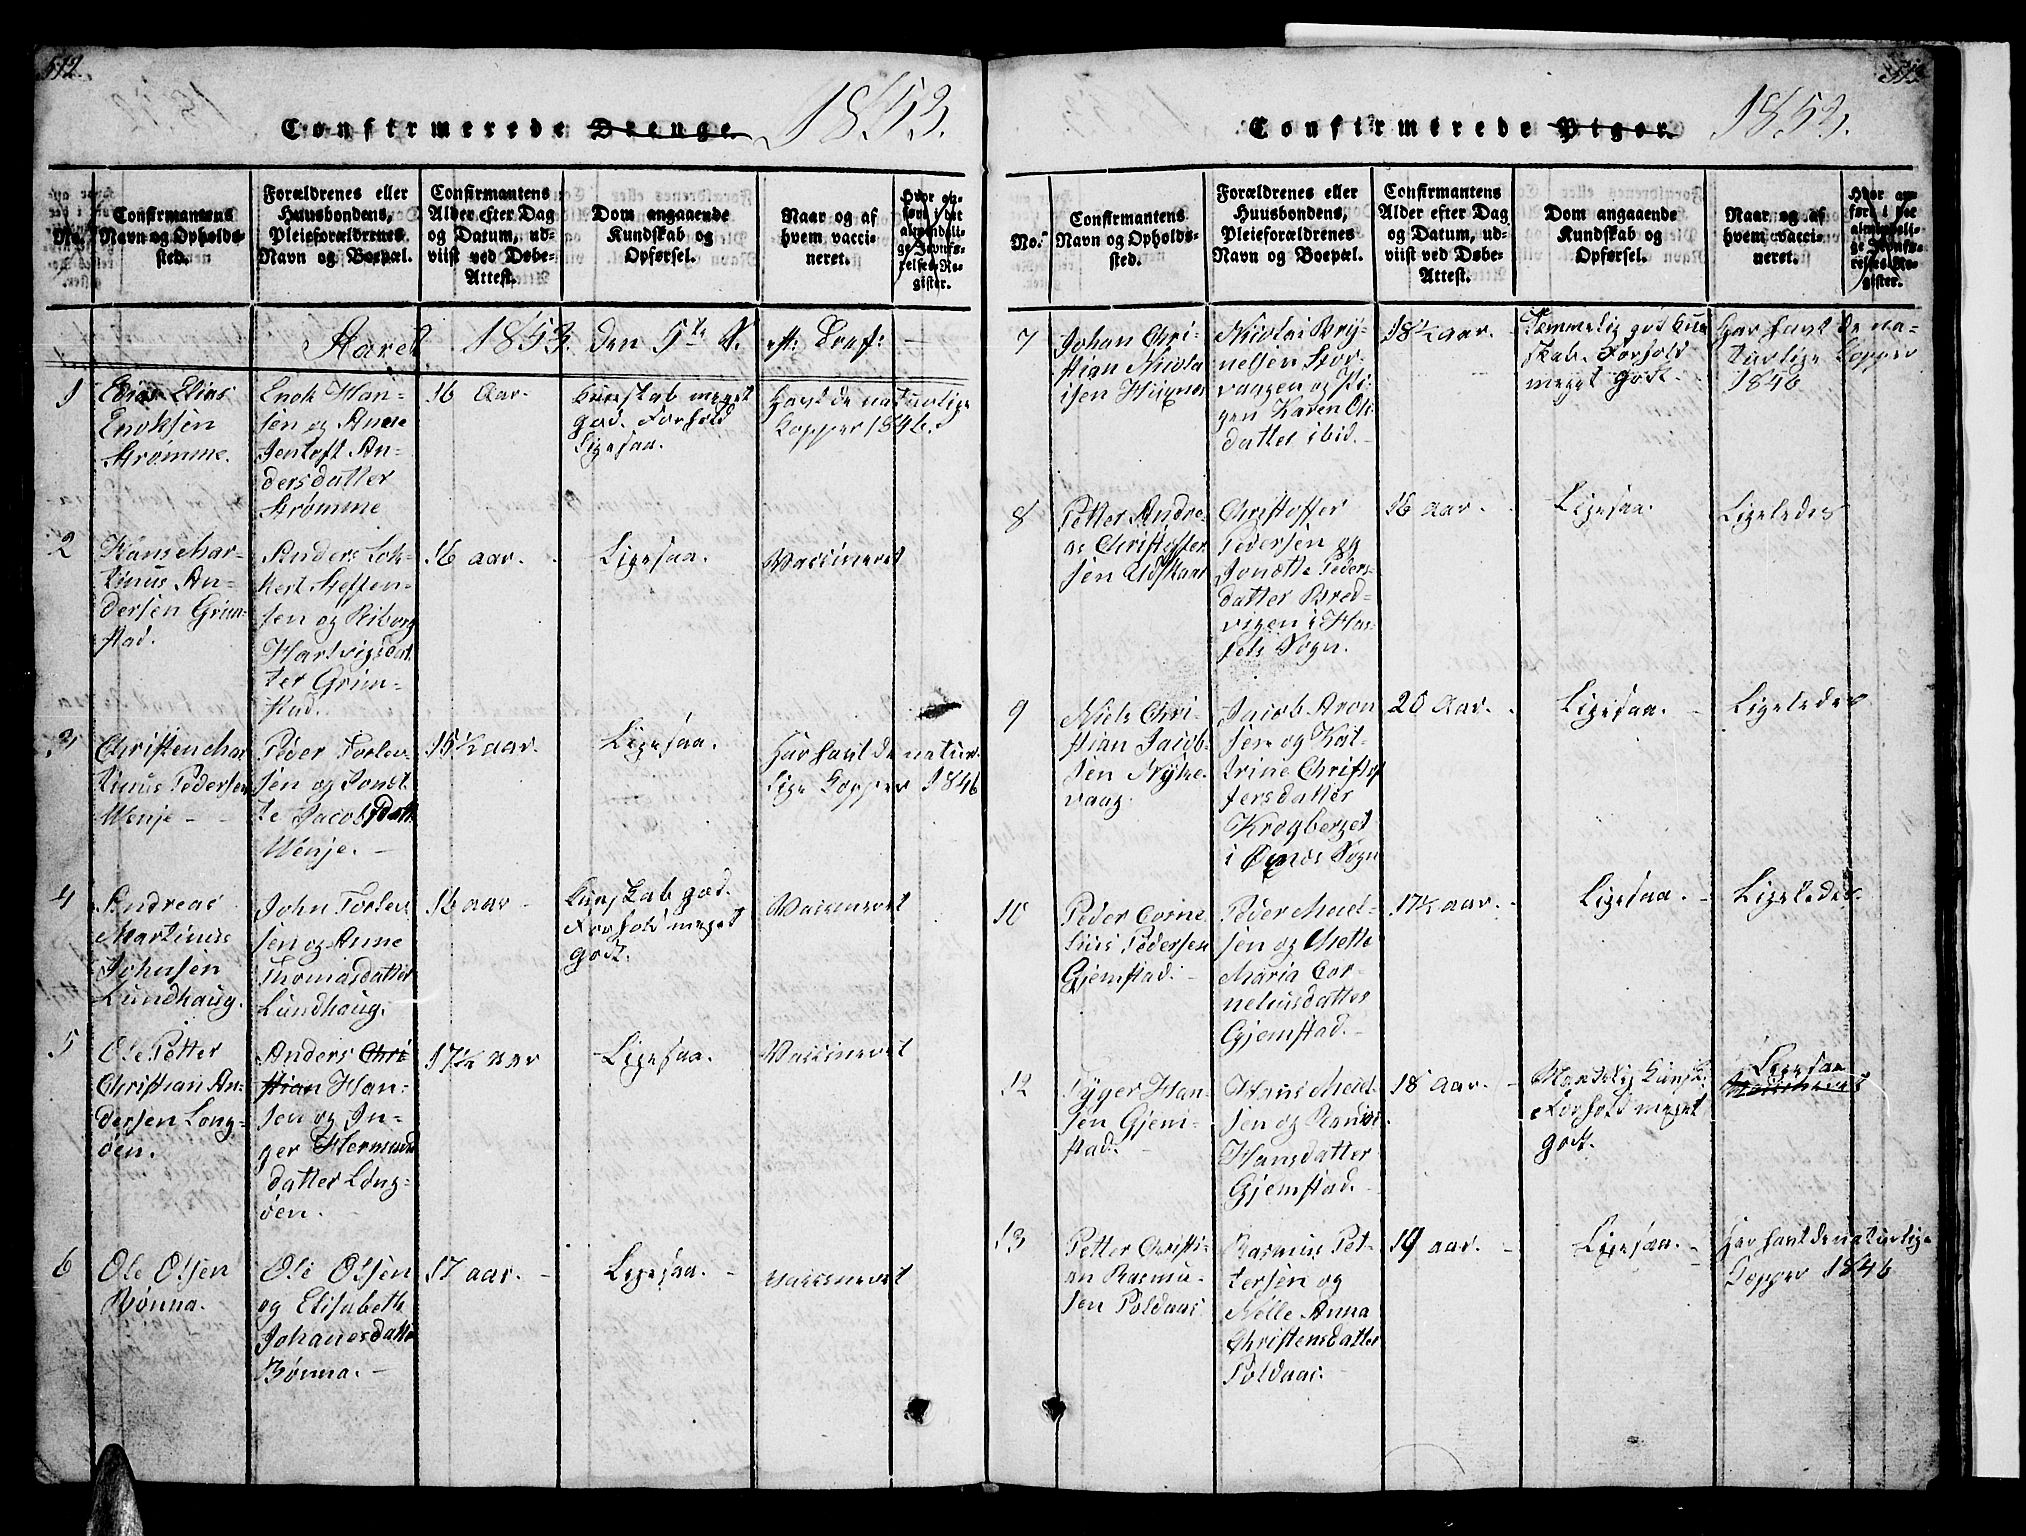 512.
Confirmerede Drenge. 1853.
No.
Confirmantens
Navn og Opholds-
sted.
Forældrenes eller
Huusbondens,
Pleieforældrenes
Navn og Boepæl.
Confirmantens
Alder efter Dag
og Datum, ud-
viist ved Døbe-
Attest.
Dom angaaende
Kundskab og
Opførsel.
Naar og af
hvem vacci-
neret.
Hvor an-
ført i det
almindeli-
ge Jevnfø-
relses-Re-
gister.
Aaret 1853. den 5te S. eft: Tref:
1
Elias
Enoksen
Strømme.
Enok Han-
sen og Anne
Jentoft An-
dersdatter
Strømme
16 Aar.
Kunskab meget
god. Forhold
Ligesaa.
Havt de naturlige
Kopper 1846.
2
Hans Mar-
tinus An-
dersen Grim-
stad.
Anders Lok-
kert Steffen-
sen og Riborg
Hartvigsdat
ter Grim-
stad.
16 aar.
Ligesaa.
Vaccineret
3
Christen Mar
tinus Pedersen
Wenje -
Peder Torlev-
sen og Jonet
te Jacobsdatt
Wenje. -
15½ aar.
Ligesaa.
Har havt de natur-
lige Kopper 1846
4
Andreas
Martinus
Johnsen
Lundhaug.
John Torlev
sen og Anne
Thomasdatter
Lundhaug.
16 aar
Kunskab god.
Forhold meget
godt.
Vaccineret
5
Ole Petter
Christian An-
dersen Lang-
øen.
Anders Chri
stian Han-
sen og In-
ger Hermund
datter Lang-
øen.
17½ aar
Ligesaa.
Vaccineret
6
Ole Olsen
Bønna.
Ole Olsen
og Elisabeth
Johanesdatte
Bønna. -
17 aar. -
Ligesaa. -
Vaccineret
513.
Confirmerede Piger. 1853.
No.
Confirmantens
Navn og Opholds-
sted.
Forældrenes eller
Huusbondens,
Pleieforældrenes
Navn og Boepæl.
Confirmantens
Alder efter Dag
og Datum, ud-
viist ved Døbe-
Attest.
Dom angaaende
Kundskab og
Opførsel.
Naar og af
hvem vacci-
neret.
Hvor an-
ført i det
almindeli-
ge Jevnfø-
relses-Re-
gister.
7
Johan Chri-
stian Nicola
isen
Nicolai Bry-
nelsen Stor-
vaagen og Pi-
gen Karen Ols
datter ibid. -
18½ aar.
Temmelig god Kun
skab. Forhold
meget godt.
Har havt de na-
turlige Kopper
1846
8
Petter Andre
as Christoffer
sen
Christoffer
Pedersen og
Jonette Peders-
datter Bred-
vigen i Has-
sels Sogn.
16 aar.
Ligesaa.
Ligeledes
9
Niels Chri-
stian Jacob-
sen Nyke-
vaag.
Jacob Aron
sen og Kat-
trine Christof
fersdatter
Krogberget
i Øxnæs Sogn
20 Aar.
Ligesaa. -
Ligeledes
10
Peder Corne
lius Pedersen
Gjemstad. -
Peder Mael-
sen og Mette
Maria Cor-
neliusdatter
Gjemstad. -
17½ aar.
Ligesaa. -
Ligeledes.
12
Tyger Han-
sen Gjem-
stad. -
Hans Mael-
sen og Randi
Hansdatter
Gjemstad. -
18 aar. -
Maadelig Kunsk.
Forhold meget
godt.
Ligesaa
Vaccineret
13
Petter Christi-
an Rasmu-
sen Poldaas
Rasmus Pet-
tersen og
Nelle Anna
Christensdatter
Poldaas. -
19 aar. -
Ligesaa. -
Har havt de naturlige
Kopper 1846